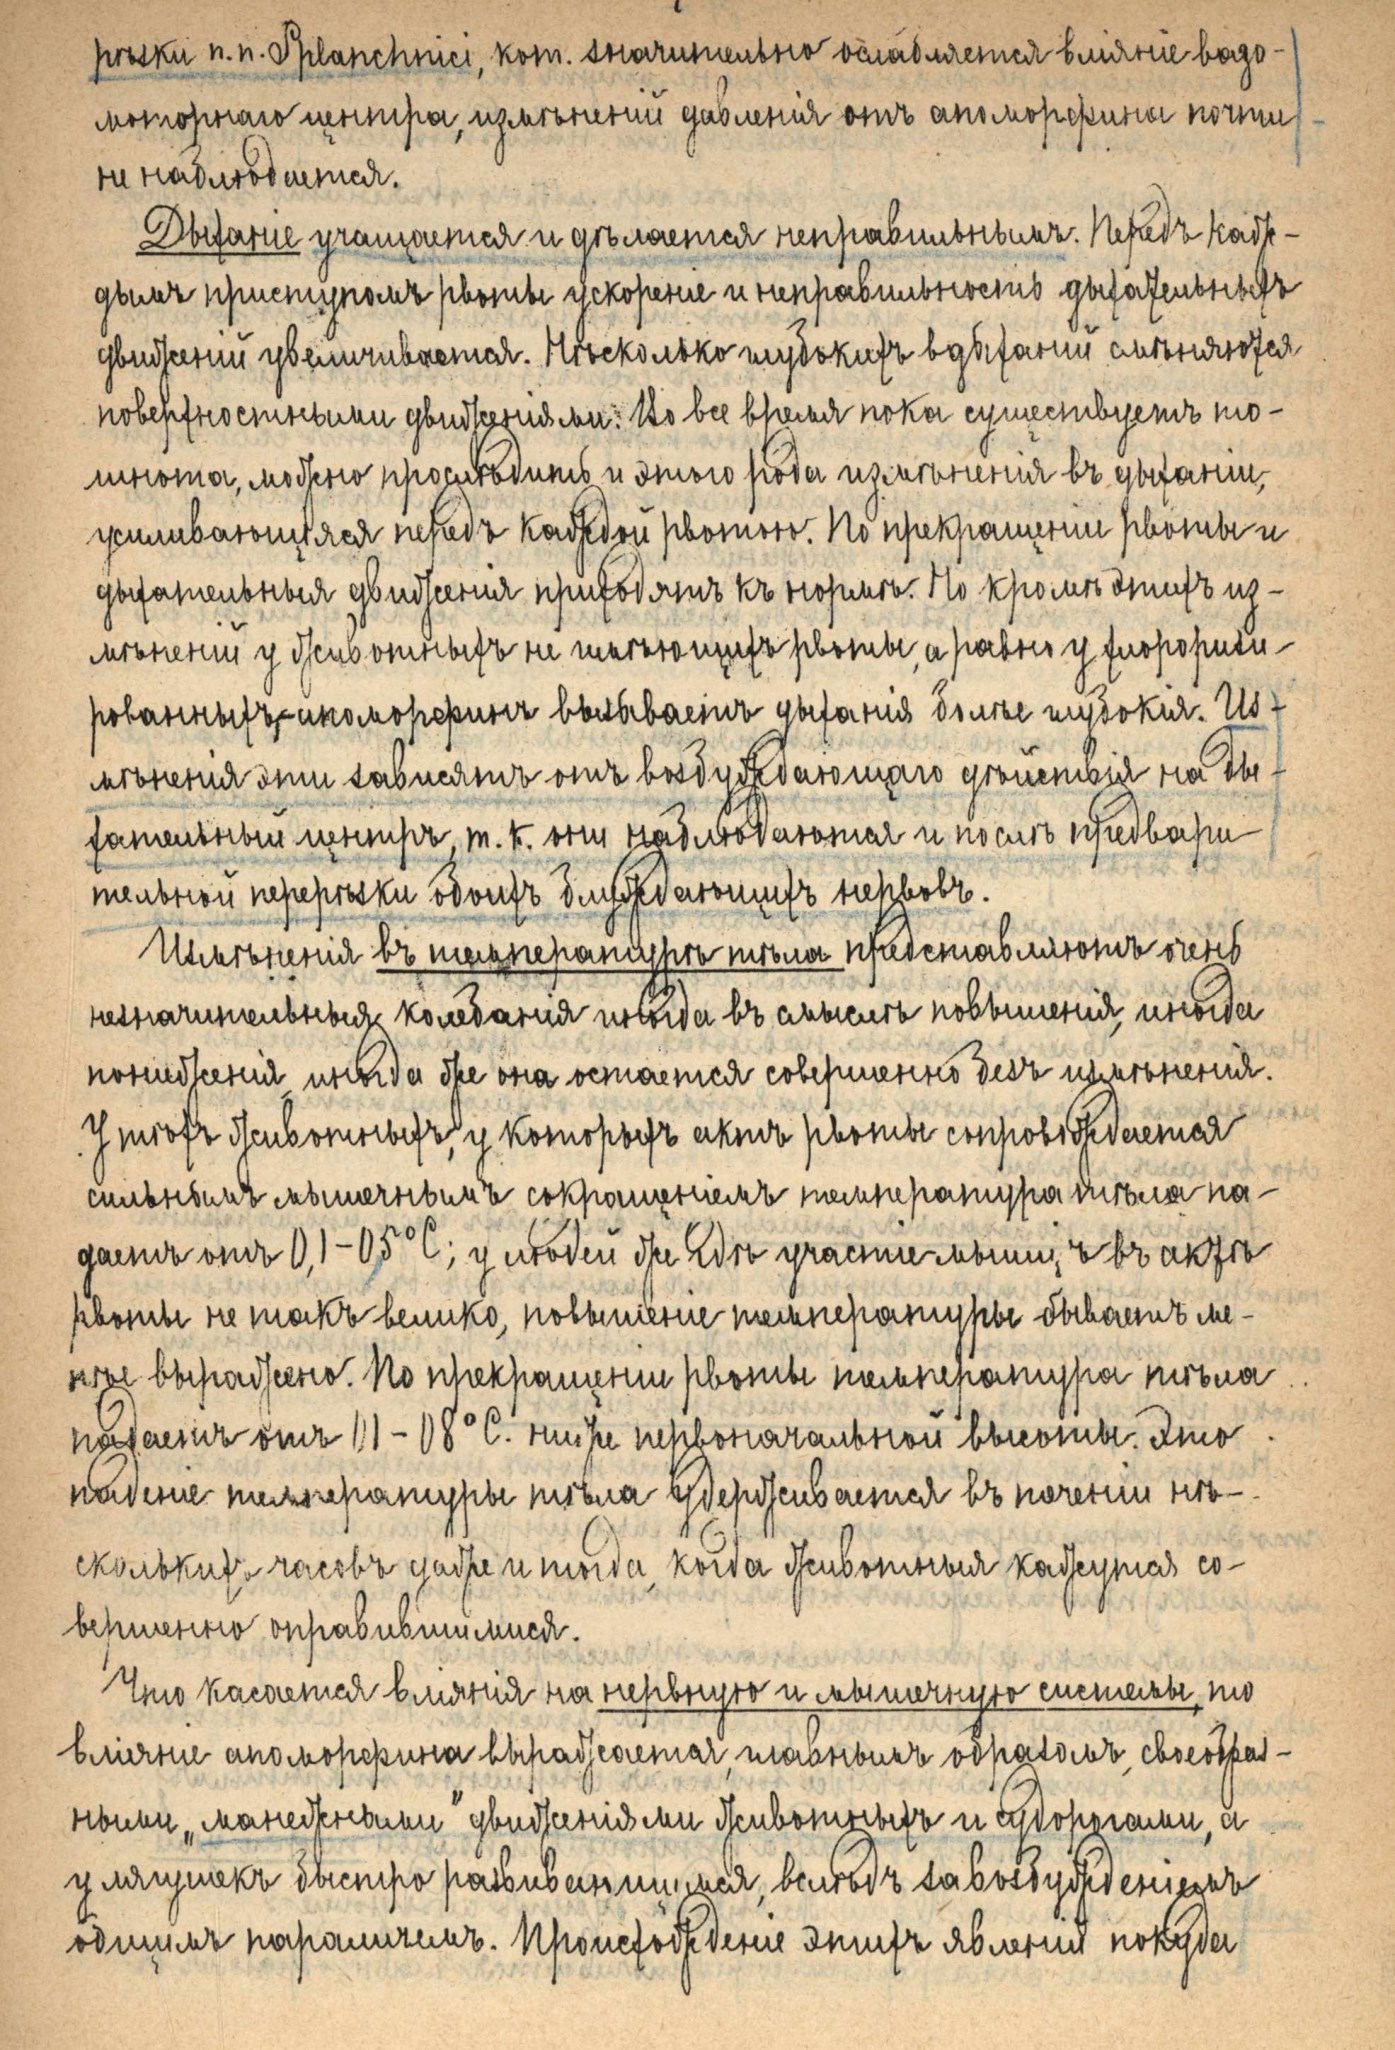 рѣзки n.n. Splanchnici, кот. значительно ослабляется вліяніе вазо-
моторнаго центра, измѣненій давленія отъ апоморфина почти
не наблюдается.
Дыханіе учащается и дѣлается неправильнымъ. Передъ каж-
дымъ приступомъ рвоты ускореніе и неправильность дыхательныхъ
движеній увеличивается. Нѣсколько глубокихъ вдыханій смѣняются
поверхностными движеніями. Во все время пока существуетъ то-
шнота, можно прослѣдить и этого рода измѣненія въ дыханіи,
усиливающіяся передъ каждой рвотою. По прекращеніи рвоты и
дыхательныя движенія приходятъ къ нормѣ. Но кромѣ этихъ из-
мѣненій у животныхъ не имѣющихъ рвоты, а равно у хлорофоризи-
рованныхъ,-апоморфинъ вызываетъ дыханія болѣе глубокія. Из-
мѣненія эти зависятъ отъ возбуждающаго дѣйствія на ды-
хательный центръ, т.к. они наблюдаются и послѣ предвари-
тельной перерѣзки обоихъ блуждающихъ нервовъ.
Измѣненія въ температурѣ тѣла представляютъ очень
незначительныя колебанія иногда въ смыслѣ повышенія, иногда
пониженія, иногда же она остается совершенно безъ измѣненія.
У тѣхъ животныхъ, у которыхъ актъ рвоты сопровождается
сильнымъ мышечнымъ сокращеніемъ температура тѣла па-
даетъ отъ 0,1-0,5°C; у людей же гдѣ участіе мышцъ въ актѣ
рвоты не такъ велико, повышеніе температуры бываетъ ме-
нѣе выражено. По прекращеніи рвоты температура тѣла
падаетъ отъ 01-08°C. ниже первоначальной высоты. Это
паденіе температуры тѣла удерживается въ теченіи нѣ-
сколькихъ часовъ даже и тогда, когда животныя кажутся со-
вершенно оправившимися.
Что касается вліянія на нервную и мышечную системы, то
вліяніе апоморфина выражается, главнымъ образомъ, своеобраз-
ными „манежными" движеніями животныхъ и судорогами, а
у лягушекъ быстро развивающимся, вслѣдъ за возбужденіемъ
общимъ параличемъ. Происхожденіе этихъ явленій покуда